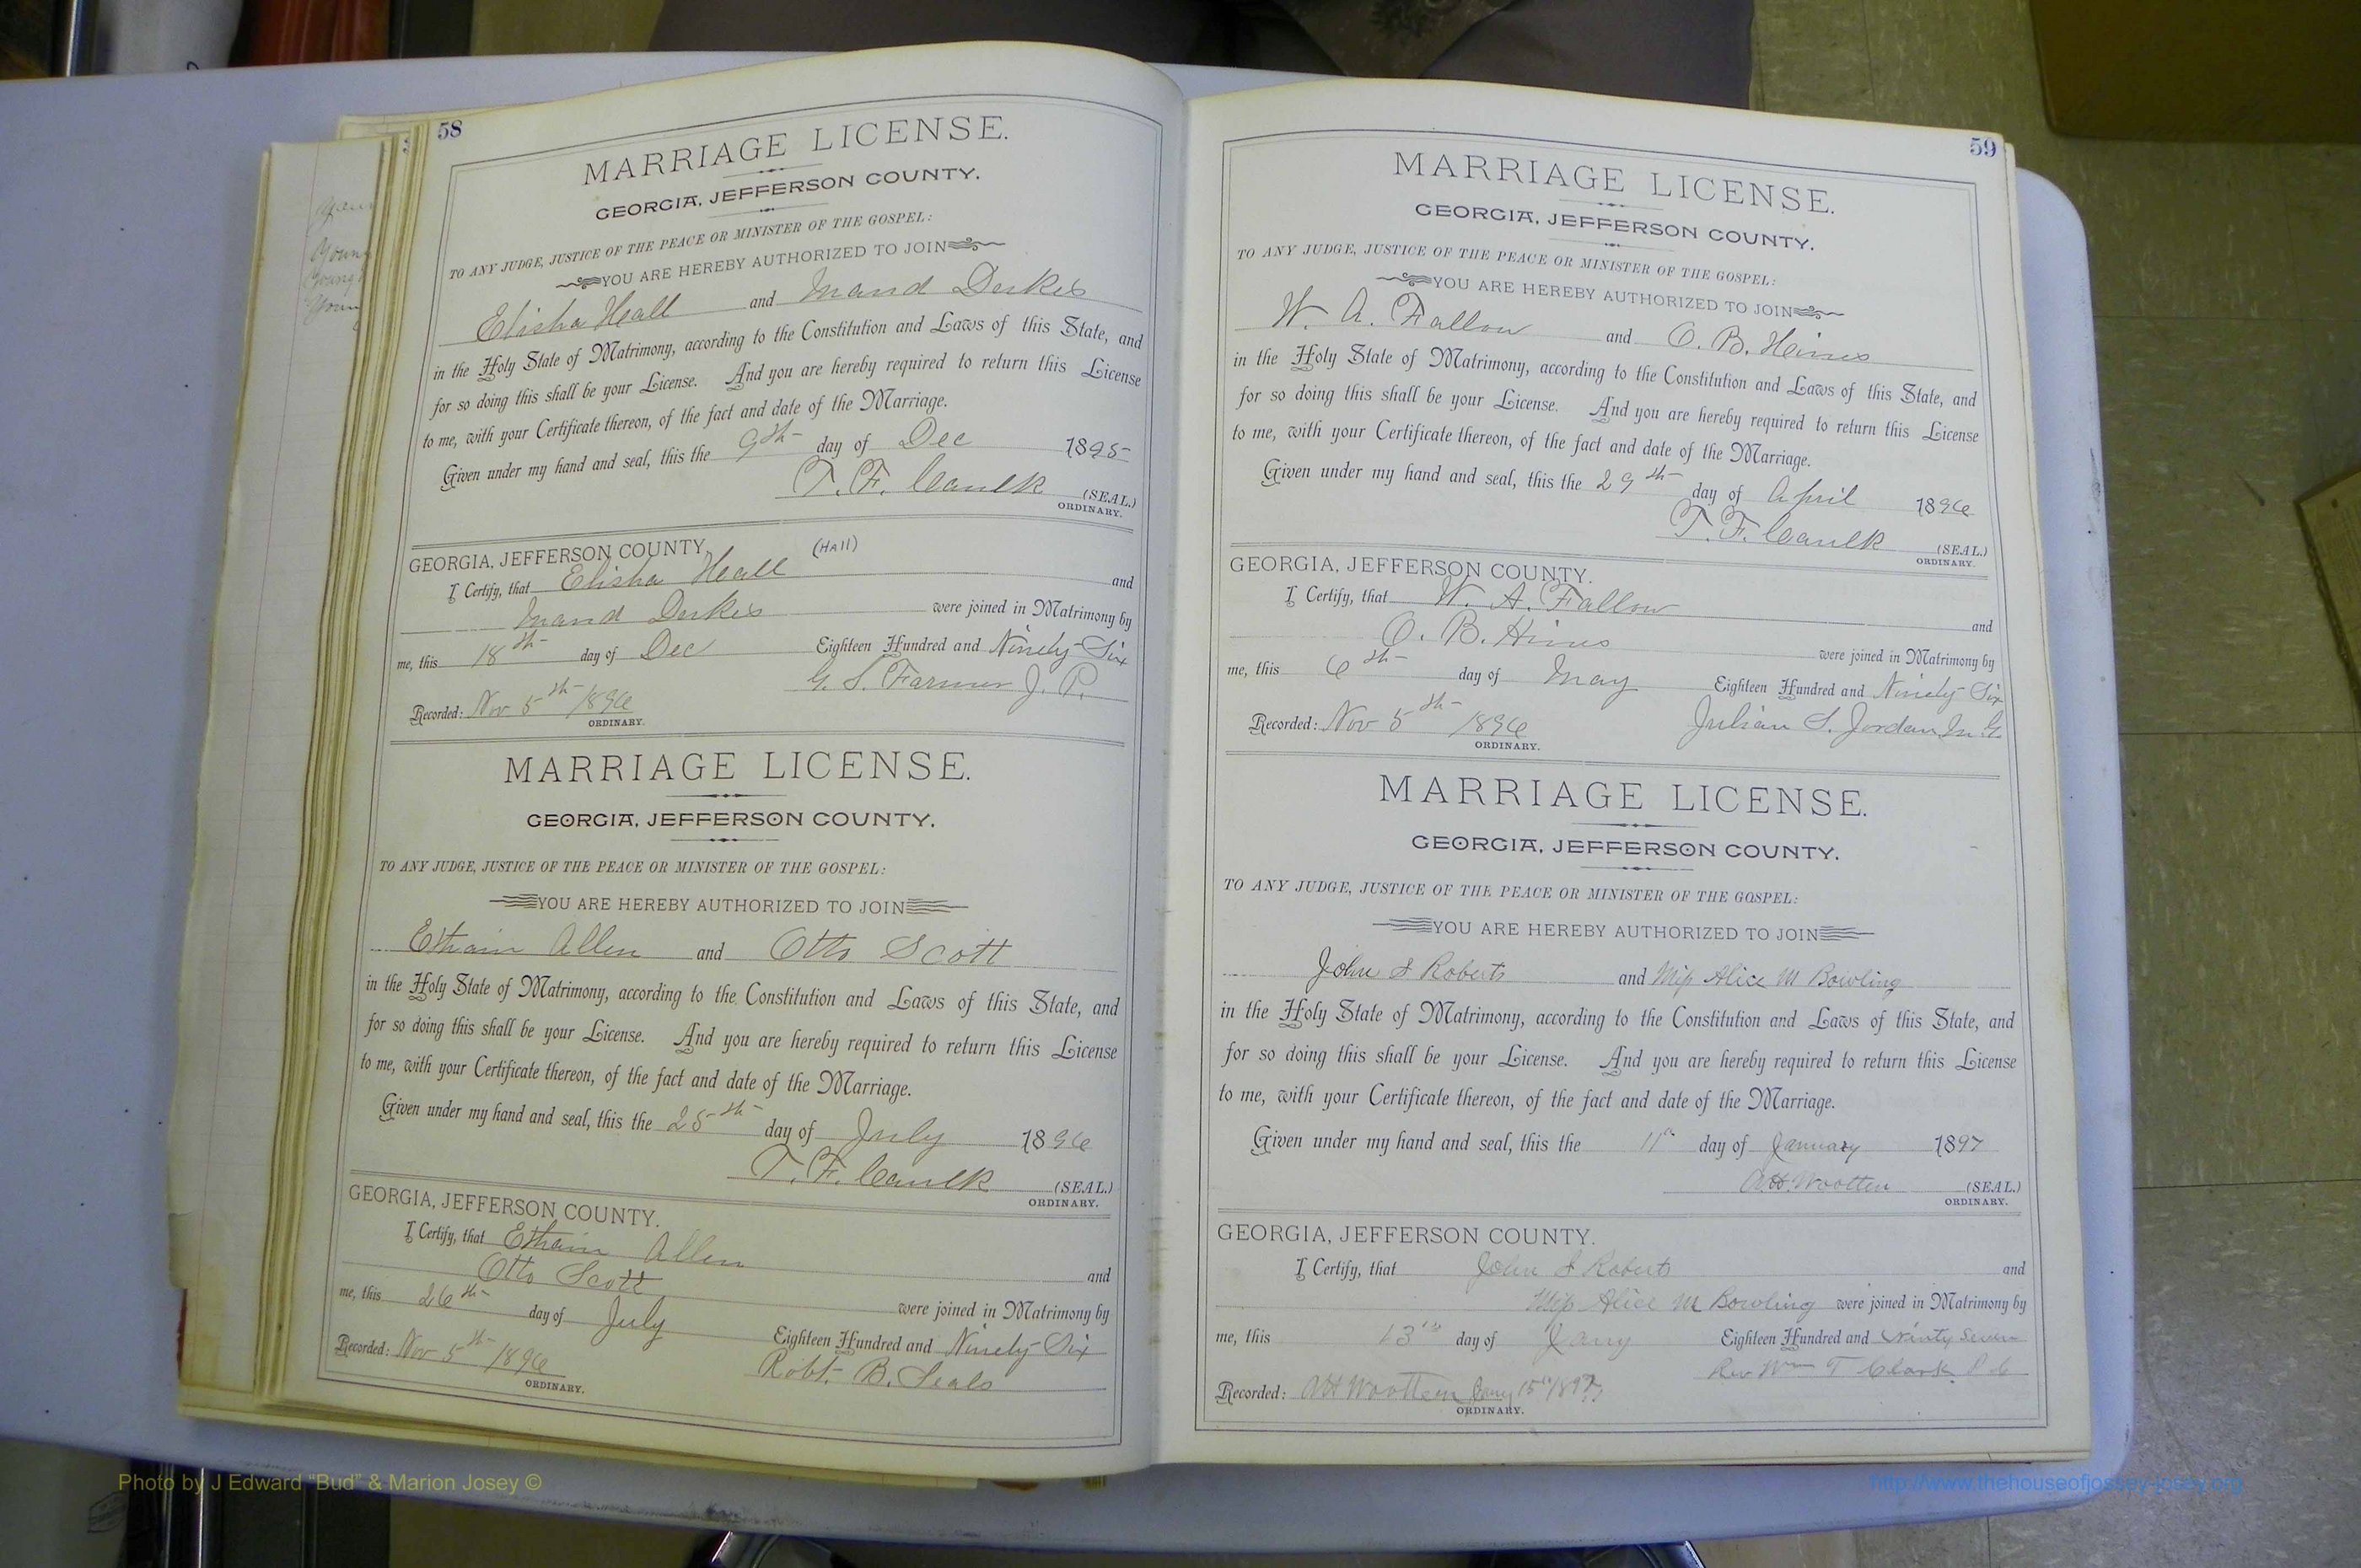 58
MARRIAGE LICENSE.
GEORGIA, JEFFERSON COUNTY.
TO ANY JUDGE, JUSTICE OF THE PEACE OR MINISTER OF THE GOSPEL:
YOU ARE HEREBY AUTHORIZED TO JOIN
Elisha Heall and Maud Dukes
in the Holy State of Matrimony, according to the Constitution and Laws of this State, and
for so doing this shall be your License. And you are hereby required to return this License
to me, with your Certificate thereon, of the fact and date of the Marriage.
Given under my hand and seal, this the 9th day of Dec 1895
T. F. Caulk (SEAL.)
ORDINARY.
GEORGIA, JEFFERSON COUNTY, (HAll)
I Certify, that Elisha Heall and
Maud Dukes were joined in Matrimony by
me, this 18th day of Dec Eighteen Hundred and Ninety-Six
G. S. Farmer J. P.
Recorded: Nov 5th 1896
ORDINARY.
MARRIAGE LICENSE.
GEORGIA, JEFFERSON COUNTY.
TO ANY JUDGE, JUSTICE OF THE PEACE OR MINISTER OF THE GOSPEL:
YOU ARE HEREBY AUTHORIZED TO JOIN
Allen and Otto Scott
in the Holy State of Matrimony, according to the Constitution and Laws of this State, and
for so doing this shall be your License. And you are hereby required to return this License
to me, with your Certificate thereon, of the fact and date of the Marriage.
Given under my hand and seal, this the 25th day of July 1896
T. F. Caulk (SEAL.)
ORDINARY.
GEORGIA, JEFFERSON COUNTY.
I Certify, that Allen
Otto Scott and
were joined in Matrimony by
me, this 26th day of July Eighteen Hundred and Ninety-Six
Robt. B. Seals
Recorded: Nov 5th 1896
ORDINARY.
59
MARRIAGE LICENSE.
GEORGIA, JEFFERSON COUNTY.
TO ANY JUDGE, JUSTICE OF THE PEACE OR MINISTER OF THE GOSPEL:
YOU ARE HEREBY AUTHORIZED TO JOIN
W. A. Fallow and O. B. Hines
in the Holy State of Matrimony, according to the Constitution and Laws of this State, and
for so doing this shall be your License. And you are hereby required to return this License
to me, with your Certificate thereon, of the fact and date of the Marriage.
Given under my hand and seal, this the 29th day of April 1896
T. F. Caulk (SEAL.)
ORDINARY.
GEORGIA, JEFFERSON COUNTY.
I Certify, that W. A. Fallow
O. B. Hines and
were joined in Matrimony by
me, this 6th day of May Eighteen Hundred and Ninety-Six
Julian S. Jordan M. G.
Recorded: Nov 5th 1896
ORDINARY.
MARRIAGE LICENSE.
GEORGIA, JEFFERSON COUNTY.
TO ANY JUDGE, JUSTICE OF THE PEACE OR MINISTER OF THE GOSPEL:
YOU ARE HEREBY AUTHORIZED TO JOIN
John S Roberts and Miss Alice M Bowling
in the Holy State of Matrimony, according to the Constitution and Laws of this State, and
for so doing this shall be your License. And you are hereby required to return this License
to me, with your Certificate thereon, of the fact and date of the Marriage.
Given under my hand and seal, this the 11th day of January 1897
Wootten (SEAL.)
ORDINARY.
GEORGIA, JEFFERSON COUNTY.
I Certify, that John S Roberts and
Miss Alice M Bowling were joined in Matrimony by
me, this 13th day of Jany Eighteen Hundred and Ninty Seven
Rev Wm T Clark P C
Recorded: Wootten Jany 15th 1897
ORDINARY.
Photo by J Edward “Bud” & Marion Josey ©
http://www.thehouseofjossey-josey.org